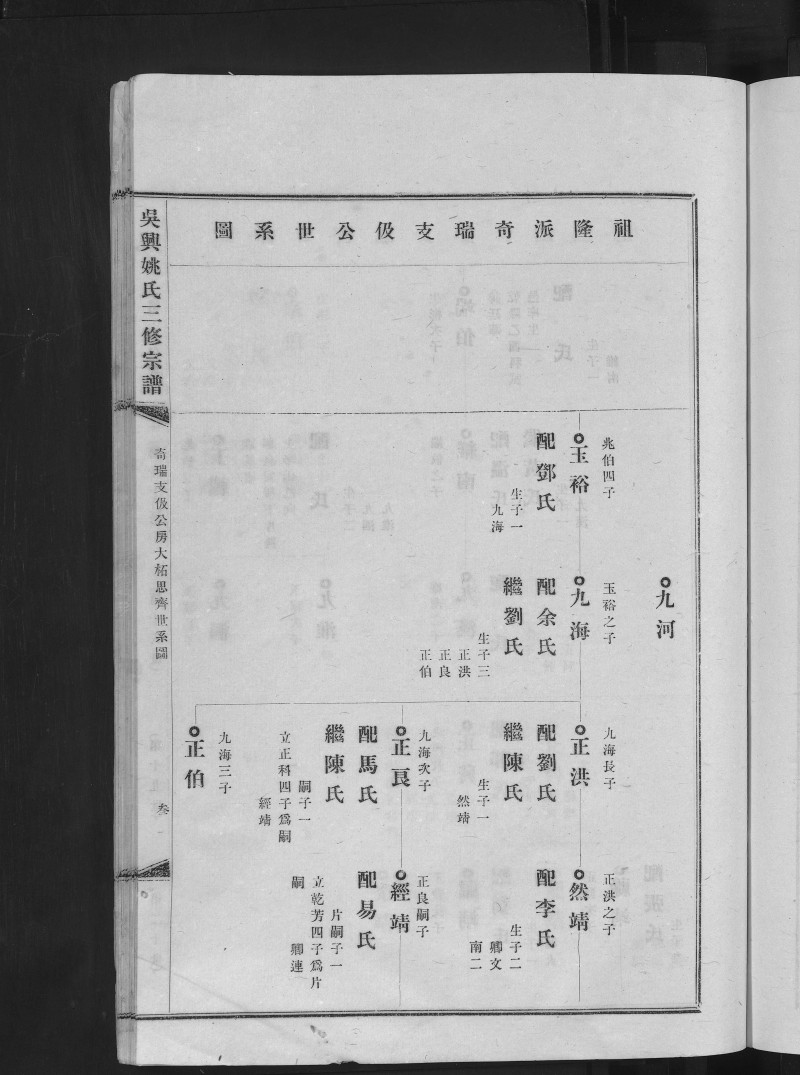 祖隆派奇瑞支伋公世系圖
九河
兆伯四子
玉裕
配鄧氏
生子一
九海
玉裕之子
九海
配余氏
繼劉氏
生子三
正洪
正良
正伯
九海長子
正洪
配劉氏
繼陳氏
生子一
然靖
正洪之子
然靖
配李氏
生子二
卿文
南二
九海次子
正良
配馬氏
繼陳氏
嗣子一
立正科四子爲嗣
經靖
正良嗣子
經靖
配易氏
片嗣子一
立乾芳四子爲片
嗣
卿連
九海三子
正伯
吳興姚氏三修宗譜
奇瑞支伋公房大柘思齊世系圖
叁